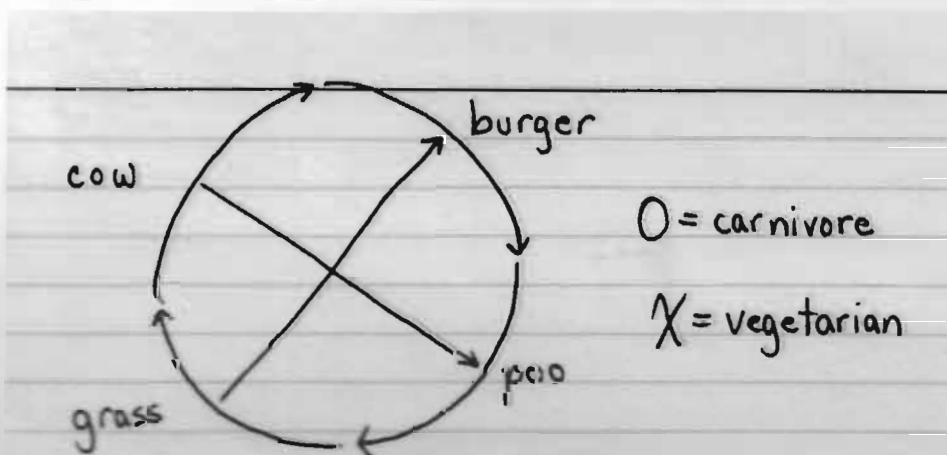 burger
cow
O = carnivore
X = vegetarian
poo
grass